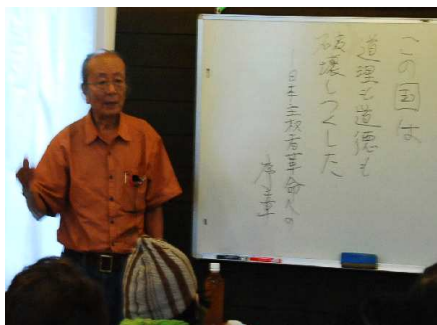 この国は
道理も道徳も
破壊しつくした
―日本主権者革命への
序章